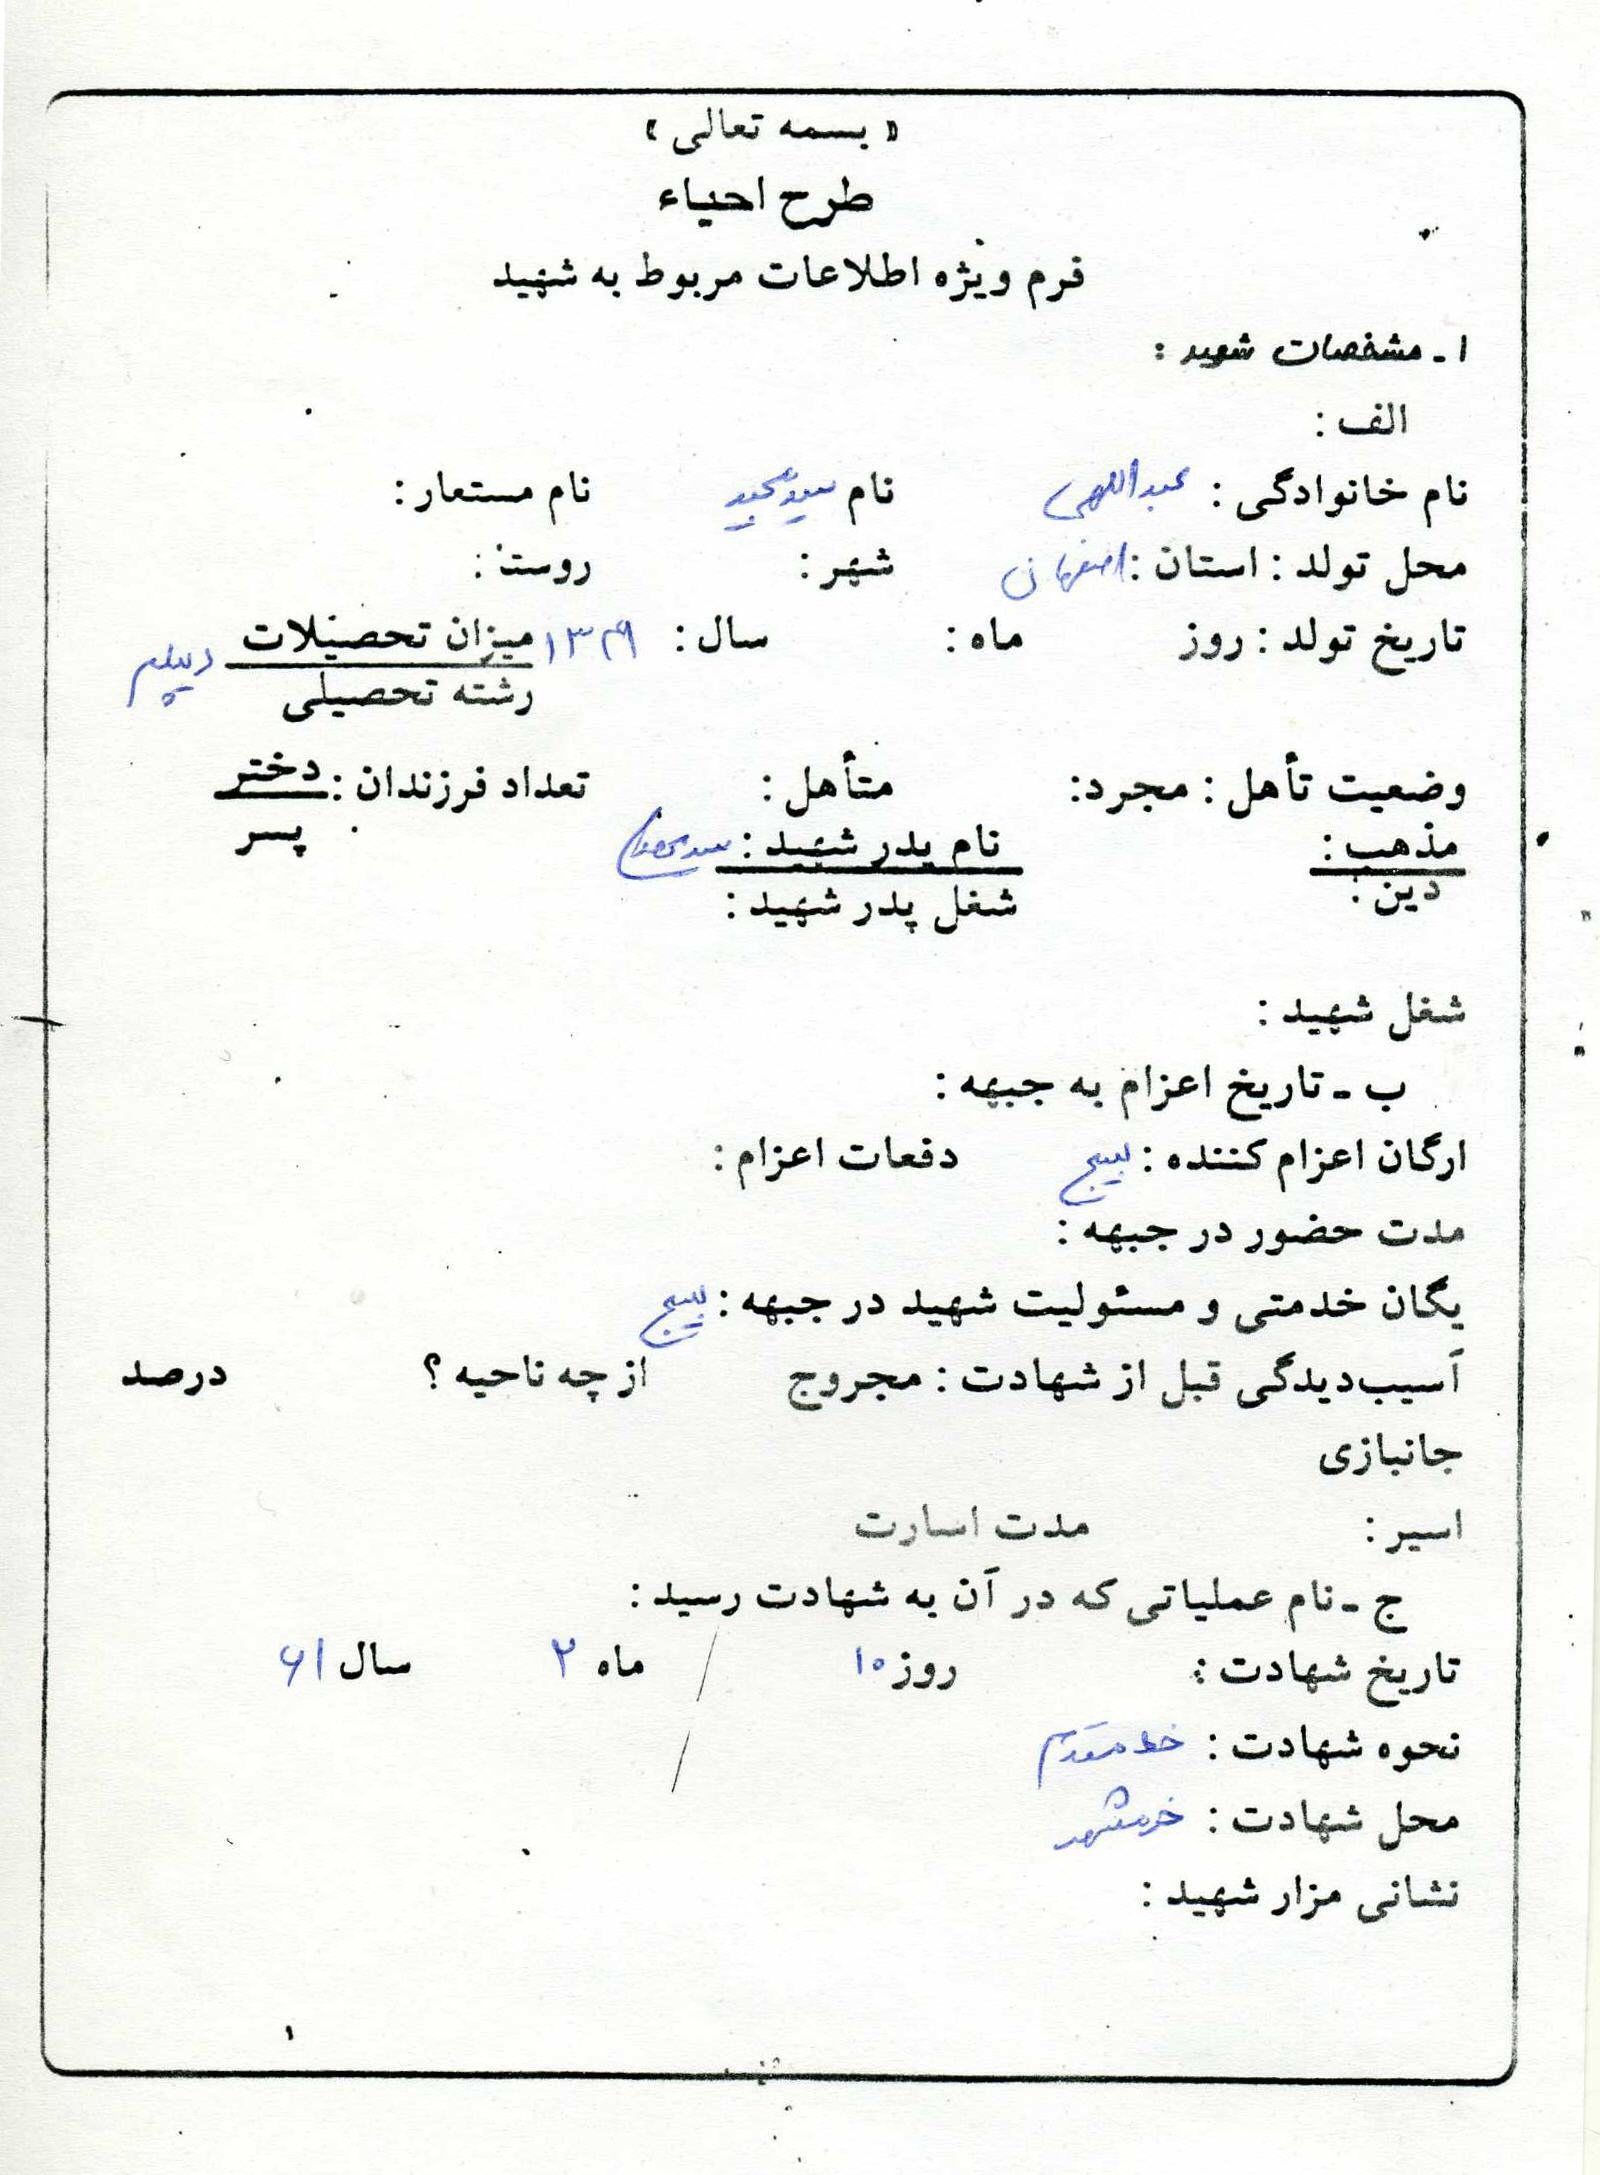 « بسمه تعالی »
طرح احیاء
فرم ویژه اطلاعات مربوط به شهید
۱ ـ مشخصات شهید :
الف :
نام خانوادگی : عبداللهی نام سید مجید نام مستعار :
محل تولد : استان : اصفهان شهر : روستا :
تاریخ تولد : روز ماه : سال : میزان تحصیلات دیپلم
رشته تحصیلی
وضعیت تأهل : مجرد : متأهل : تعداد فرزندان : دختر
پسر
مذهب : نام پدر شهید : سید
دین : شغل پدر شهید :
شغل شهید :
ب ـ تاریخ اعزام به جبهه :
ارگان اعزام کننده : بسیج دفعات اعزام :
مدت حضور در جبهه :
یگان خدمتی و مسئولیت شهید در جبهه : بسیج
آسیب‌دیدگی قبل از شهادت : مجروح از چه ناحیه ؟ درصد
جانبازی
اسیر : مدت اسارت
ج ـ نام عملیاتی که در آن به شهادت رسید :
تاریخ شهادت : روز ۱۰ ماه ۲ سال ۶۱
نحوه شهادت : خط مقدم
محل شهادت : خرمشهر
نشانی مزار شهید :
۱